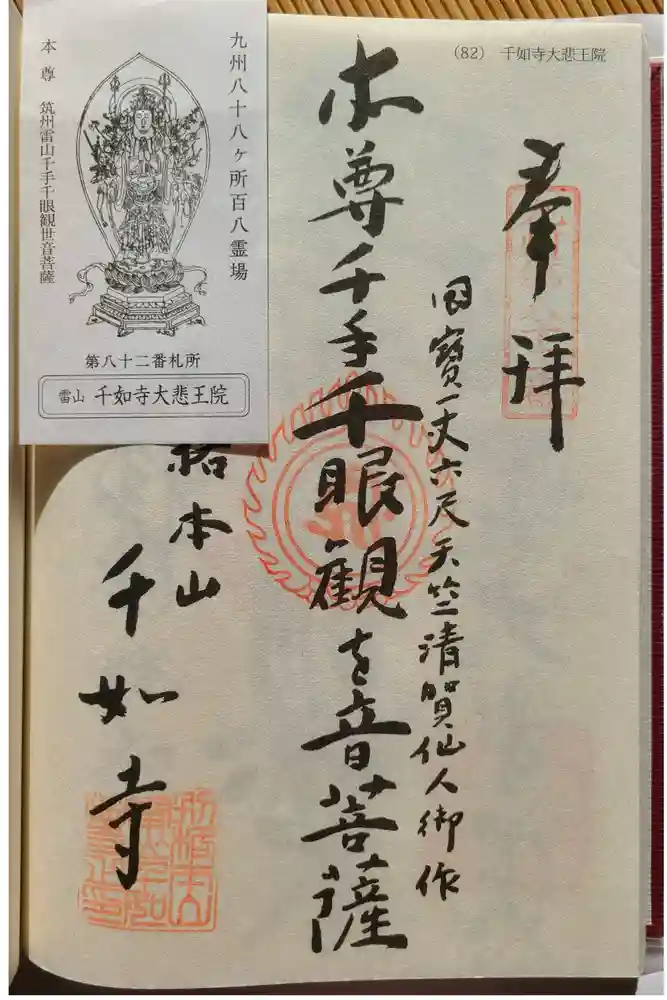 (82) 千如寺大悲王院
奉拝
国寳一丈六尺天竺清賀仙人御作
本尊千手千眼観世音菩薩
本山
千如寺
九州八十八ヶ所百八霊場
本尊 筑州雷山千手千眼観世音菩薩
第八十二番札所
雷山 千如寺大悲王院